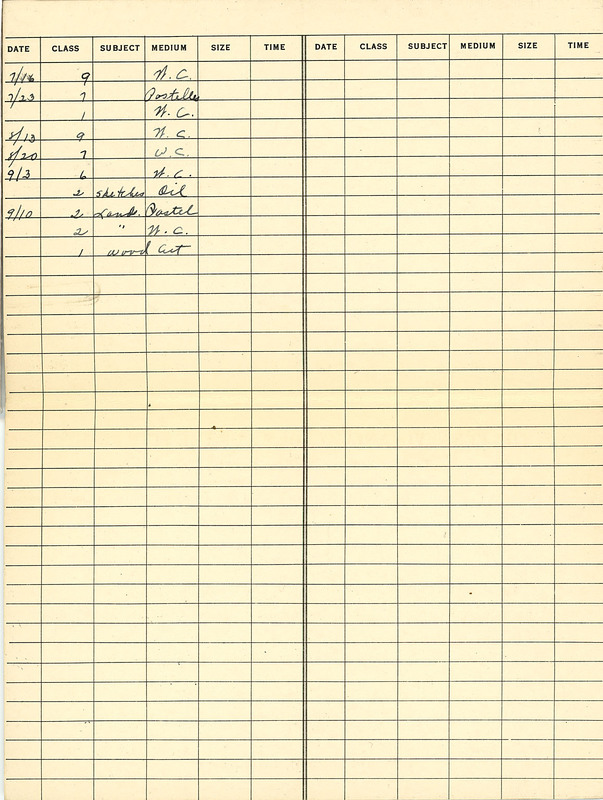 DATE CLASS SUBJECT MEDIUM SIZE TIME DATE CLASS SUBJECT MEDIUM SIZE TIME
7/16 9 W.C.
7/23 7 Pastelles
1 W.C.
8/13 9 W.C.
8/20 7 W.C.
9/3 6 W.C.
2 sketches Oil
9/10 2 Land. Pastel
2 " W.C.
1 wood cut